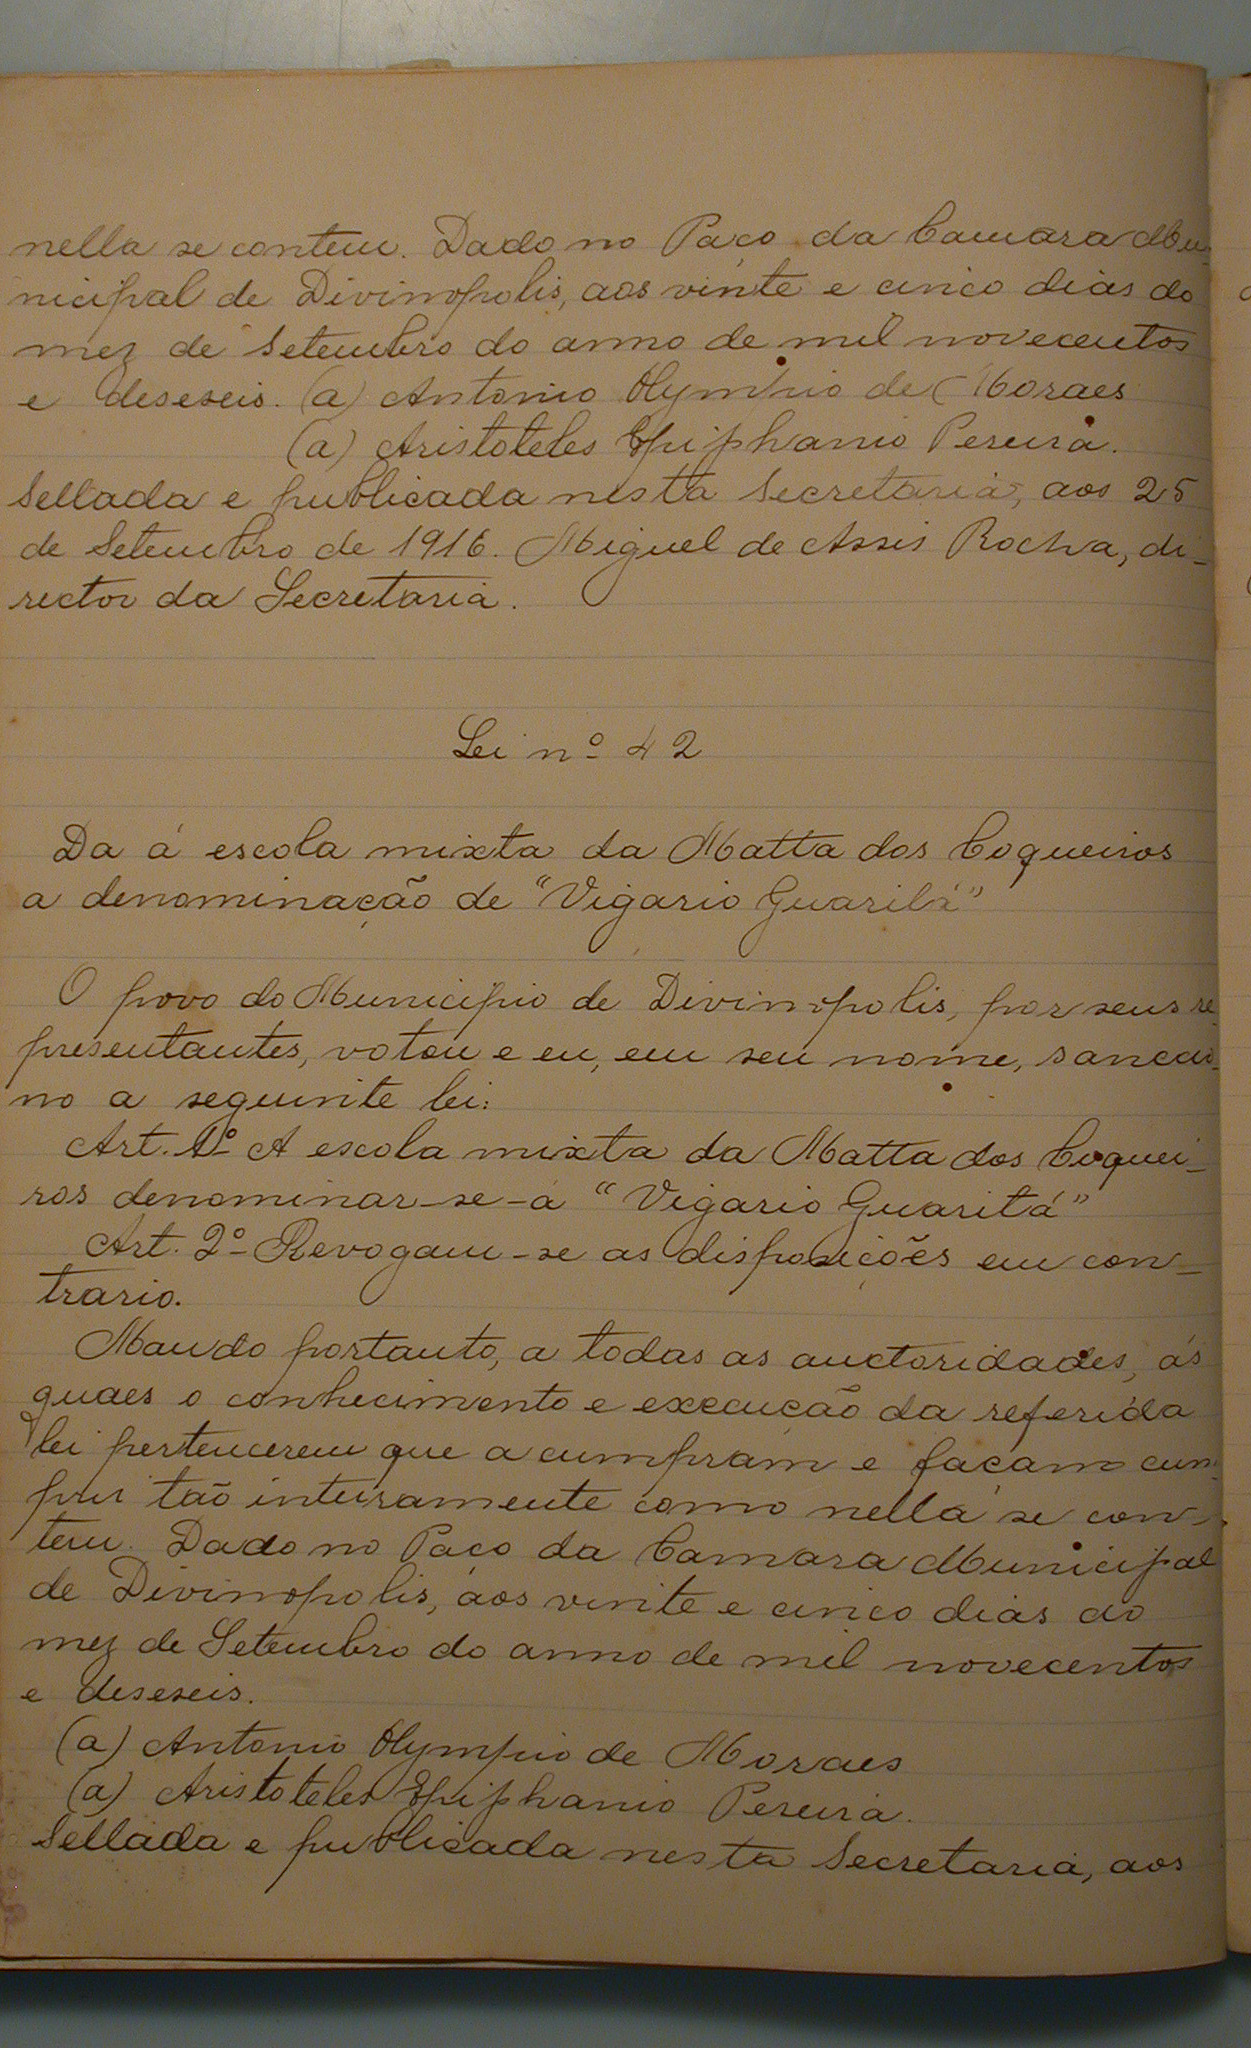 nella se contem. Dado no Paço da Camara Mu-
nicipal de Divinopolis, aos vinte e cinco dias do
mez de Setembro do anno de mil novecentos
e deseseis. (a) Antonio Olympio de Moraes
(a) Aristoteles Epiphanio Pereira.
Sellada e publicada nesta Secretaria, aos 25
de Setembro de 1916. Miguel de Assis Rocha, di-
rector da Secretaria.
Lei nº 42
Da á escola mixta da Matta dos Coqueiros
a denominação de "Vigario Guaritá"
O povo do Municipio de Divinopolis, por seus re-
presentantes, votou e eu, em seu nome, sanccio-
no a seguinte lei:
Art. 1º A escola mixta da Matta dos Coquei-
ros denominar-se-á "Vigario Guaritá"
Art. 2º Revogam-se as disposições em con-
trario.
Mando portanto, a todas as auctoridades, ás
quaes o conhecimento e execução da referida
lei pertencerem que a cumpram e façam cum-
prir tão inteiramente como nella se con-
tem. Dado no Paço da Camara Municipal
de Divinopolis, aos vinte e cinco dias do
mez de Setembro do anno de mil novecentos
e deseseis.
(a) Antonio Olympio de Moraes
(a) Aristoteles Epiphanio Pereira.
Sellada e publicada nesta Secretaria, aos